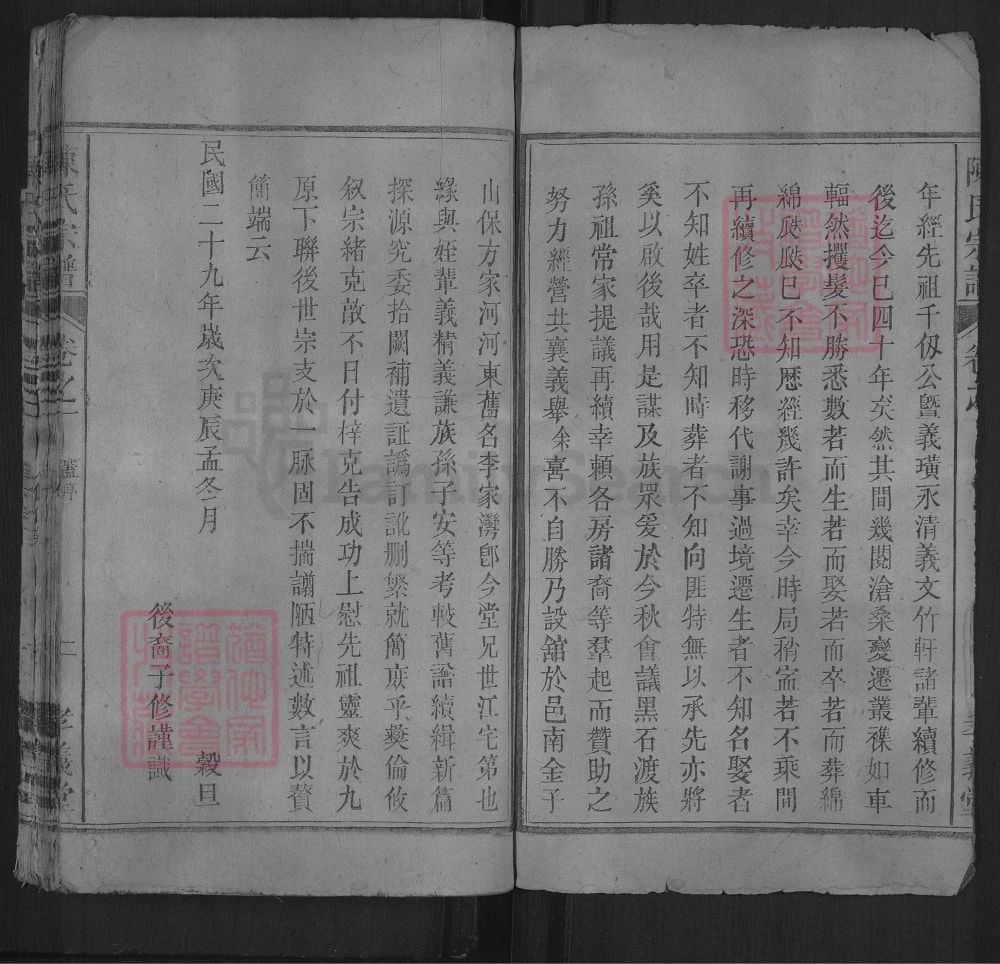 年經先祖千仭公曁義璜永清義文竹軒諸輩續修而
後迄今已四十年矣然其間幾閱滄桑變遷叢襍如車
輻然擢髮不勝悉數若而生若而娶若而卒若而葬綿
綿瓞瓞已不知歴經幾許矣幸今時局稍寍若不乘間
再續修之深恐時移代謝事過境遷生者不知名娶者
不知姓卒者不知時葬者不知向匪特無以承先亦將
奚以啟後哉用是謀及族眾爰於今秋會議黑石渡族
孫祖常家提議再續幸賴各房諸裔等羣起而贊助之
努力經營共襄義舉余喜不自勝乃設舘於邑南金子
山保方家河河東舊名李家灣卽今堂兄世江宅第也
豫與姪輩義精義謙族孫子安等考較舊譜續緝新篇
探源究委拾闕補遺証譌訂訛删繁就簡庻乎彜倫攸
叙宗緒克敵不日付梓克告成功上慰先祖靈爽於九
原下聯後世宗支於一脉固不揣譾陋特述數言以贅
簡端云
民國二十九年嵗次庚辰孟冬月 穀旦
後裔子修謹識
陳氏宗譜 卷之一 二 孝義堂